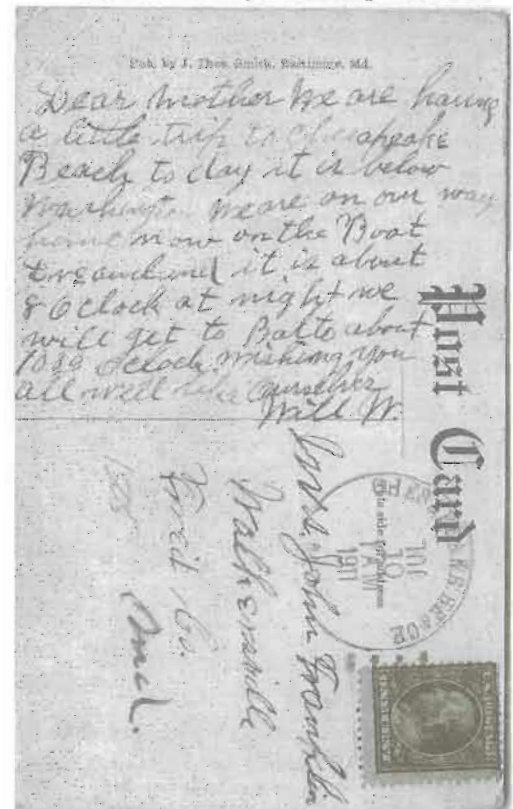 Pub. by J. Thos. Smith, Baltimore, Md.
Dear Mother We are having
a little trip to Chesapeake
Beach to day it is below
Washington we are on our way
home now on the Boat
Dreamland it is about
8 Oclock at night we
will get to Balto about
1030 Oclock. Wishing you
all well like Ourselves
Will W.
Post Card
This side for address
CHESAPEAKE BEACH
JUL
10
AM
1911
Mrs. John Franklin
Walkersville
Fred. Co.
Md.